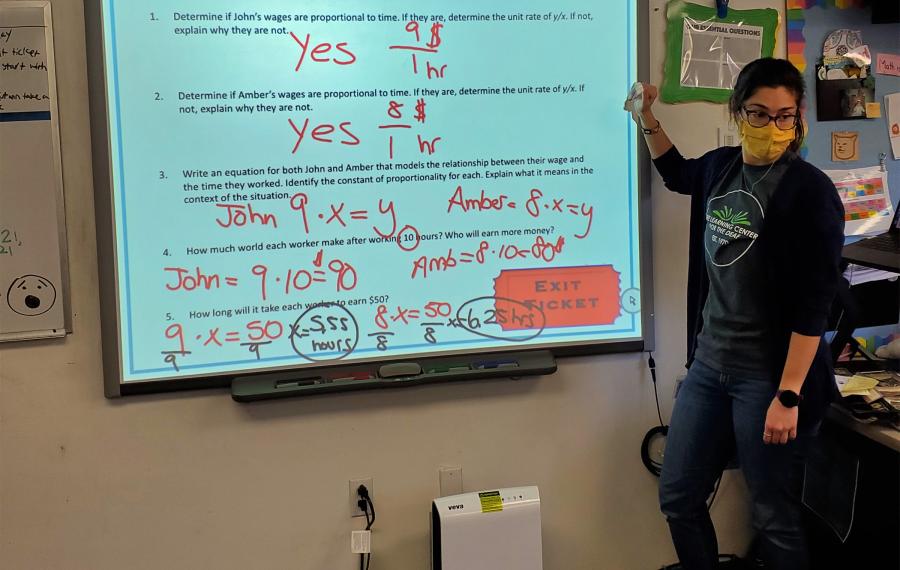 1. Determine if John's wages are proportional to time. If they are, determine the unit rate of y/x. If not,
explain why they are not.
Yes 9 $
1 hr
2. Determine if Amber's wages are proportional to time. If they are, determine the unit rate of y/x. If
not, explain why they are not.
Yes 8 $
1 hr
3. Write an equation for both John and Amber that models the relationship between their wage and
the time they worked. Identify the constant of proportionality for each. Explain what it means in the
context of the situation.
John 9·x=y Amber= 8·x=y
4. How much world each worker make after working 10 hours? Who will earn more money?
John = 9·10=$90 Amb=8·10=80$
5. How long will it take each worker to earn $50?
9·x=50 x=5,55 hours 8·x=50 x=6,25hrs
9 9 8 8
EXIT
TICKET
ESSENTIAL QUESTIONS
Math
LEARNING CENTER
FOR THE DEAF
veva
ticket
start with